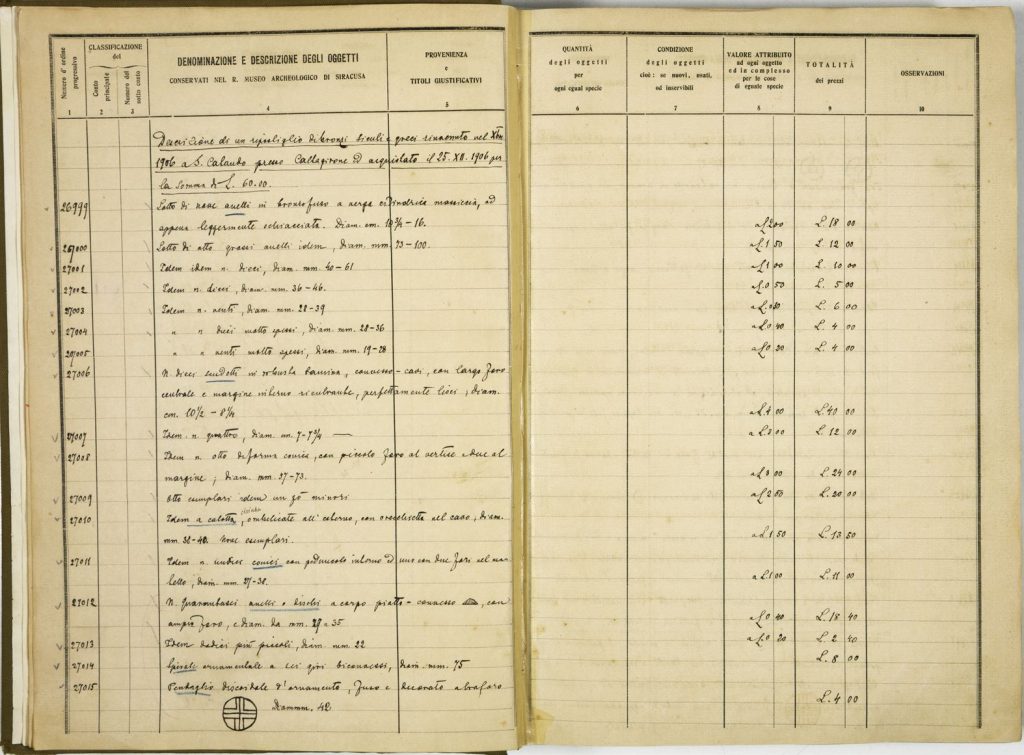 Numero d'ordine progressivo
CLASSIFICAZIONE del
Conto principale
Numero del sotto conto
DENOMINAZIONE E DESCRIZIONE DEGLI OGGETTI
CONSERVATI NEL R. MUSEO ARCHEOLOGICO DI SIRACUSA
PROVENIENZA
e
TITOLI GIUSTIFICATIVI
QUANTITÀ
degli oggetti
per
ogni egual specie
CONDIZIONE
degli oggetti
cioè: se nuovi, usati,
od inservibili
VALORE ATTRIBUITO
ad ogni oggetto
ed in complesso
per le cose
di eguale specie
TOTALITÀ
dei prezzi
OSSERVAZIONI
1 2 3 4 5 6 7 8 9 10
Descrizione di un ripostiglio di bronzi siculi e greci rinvenuto nel
1906 a S. Cataudo presso Caltagirone ed acquistato il 25. XII. 1906 per
la somma di L. 60.00.
26999 Lotto di nove anelli in bronzo fuso a verga cilindrica massiccia, od
appena leggermente schiacciata. Diam. cm. - 16. a L. 2 00 L. 18 00
Lotto di otto grossi anelli idem, diam. mm. 73-100. a L. 1 50 L. 12 00
27001 Idem idem n. dieci, diam. mm. 40-61 a L. 1 00 L. 10 00
27002 Idem n. dieci, diam. mm. 36-46. a L. 0 50 L. 5 00
27003 Idem n. venti, diam. mm. 28-39 L. 6 00
27004 " n dieci molto spessi, diam. mm. 28-36 a L. 0 40 L. 4 00
" n venti molto spessi, diam. mm. 19-28 a L. 0 20 L. 4 00
27006 N. dieci scudetti in robusta lamina, convesso-cavi, con largo foro
centrale e margine interno rientrante, perfettamente lisci, diam.
cm. 10 1/2 - 8 1/4 a L. 4 00 L. 40 00
27007 Idem. n. quattro, diam. cm. 7-7 3/4 — a L. 3 00 L. 12 00
27008 Idem n. otto di forma conica, con piccolo foro al vertice e due al
margine; diam. mm. 57-73. a L. 3 00 L. 24 00
27009 Otto esemplari idem un pò minori a L. 2 50 L. 20 00
27010 Idem a calotta, ombelicate all'esterno, con nel cavo, diam.
mm. 38-40. Nove esemplari. a L. 1 50 L. 13 50
27011 Idem n. undici conici con peduncolo interno ed uno con due fori nel
diam. mm. 27-38. a L. 1 00 L. 11 00
27012 N. Quarantasei anelli o dischi a corpo piatto-convesso, con
ampio foro, e diam. da mm. 29 a 35 a L. 0 40 L. 18 40
27013 Idem dodici più piccoli, diam. mm. 22 a L. 0 20 L. 2 40
27014 Spirale ornamentale a sei giri biconvessi, diam. mm. 75 L. 8 00
27015 Pendaglio discoidale d'ornamento, fuso e decorato a traforo L. 4 00
Diamm. 42.